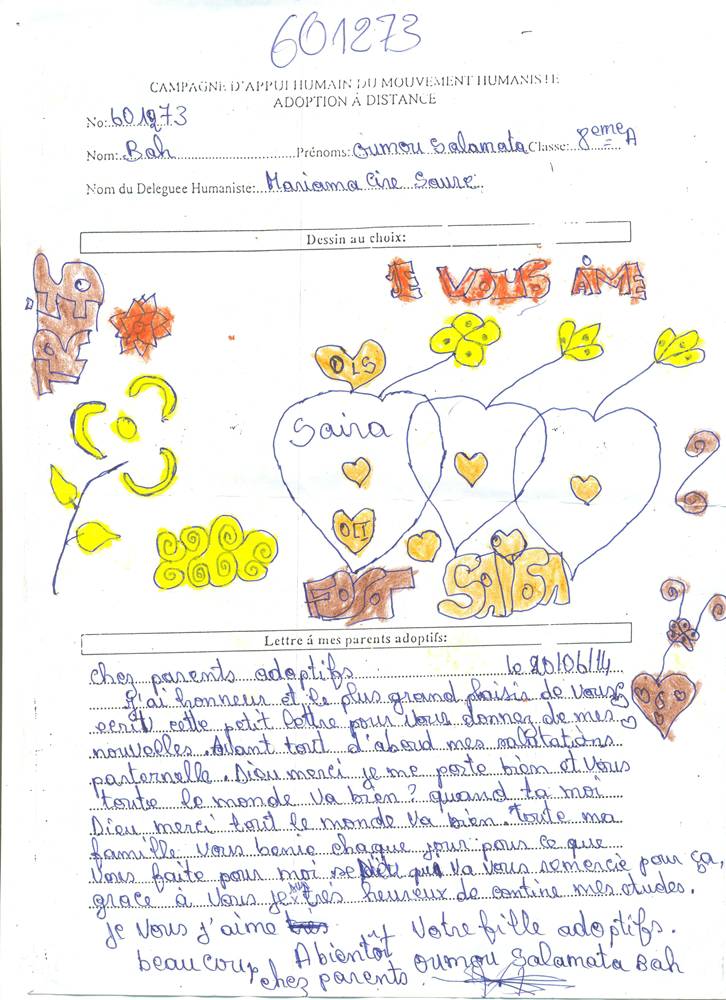 601273
CAMPAGNE D'APPUI HUMAIN DU MOUVEMENT HUMANISTE
ADOPTION À DISTANCE
No: 601273
Nom: Bah Prénoms: Oumou Salamata Classe: 8eme A
Nom du Deleguee Humaniste: Mariama Cire Soure
Dessin au choix:
JE VOUS ÂME
OLS
Saira
OLI
Lettre á mes parents adoptifs:
chez parents adoptifs le 20/06/14
J'ai honneur et le plus grand plaisis de vous
ecrit cette petit lettre pour vous donnez de mes
nouvelles. Avant tout d'abord mes salutations
pasternelle. Dieu merci je me porte bien et vous
toute le monde va bien? quand ta moi
Dieu merci tout le monde va bien. toute ma
famille vous benie chaque jour pour ce que
vous faite pour moi se qui va vous remercie pour ça,
grace à vous je suis très heureux de contine mes etudes.
je vous j'aime Votre fille adoptifs.
beaucoup A bientôt Oumou Salamata Bah
chez parents.